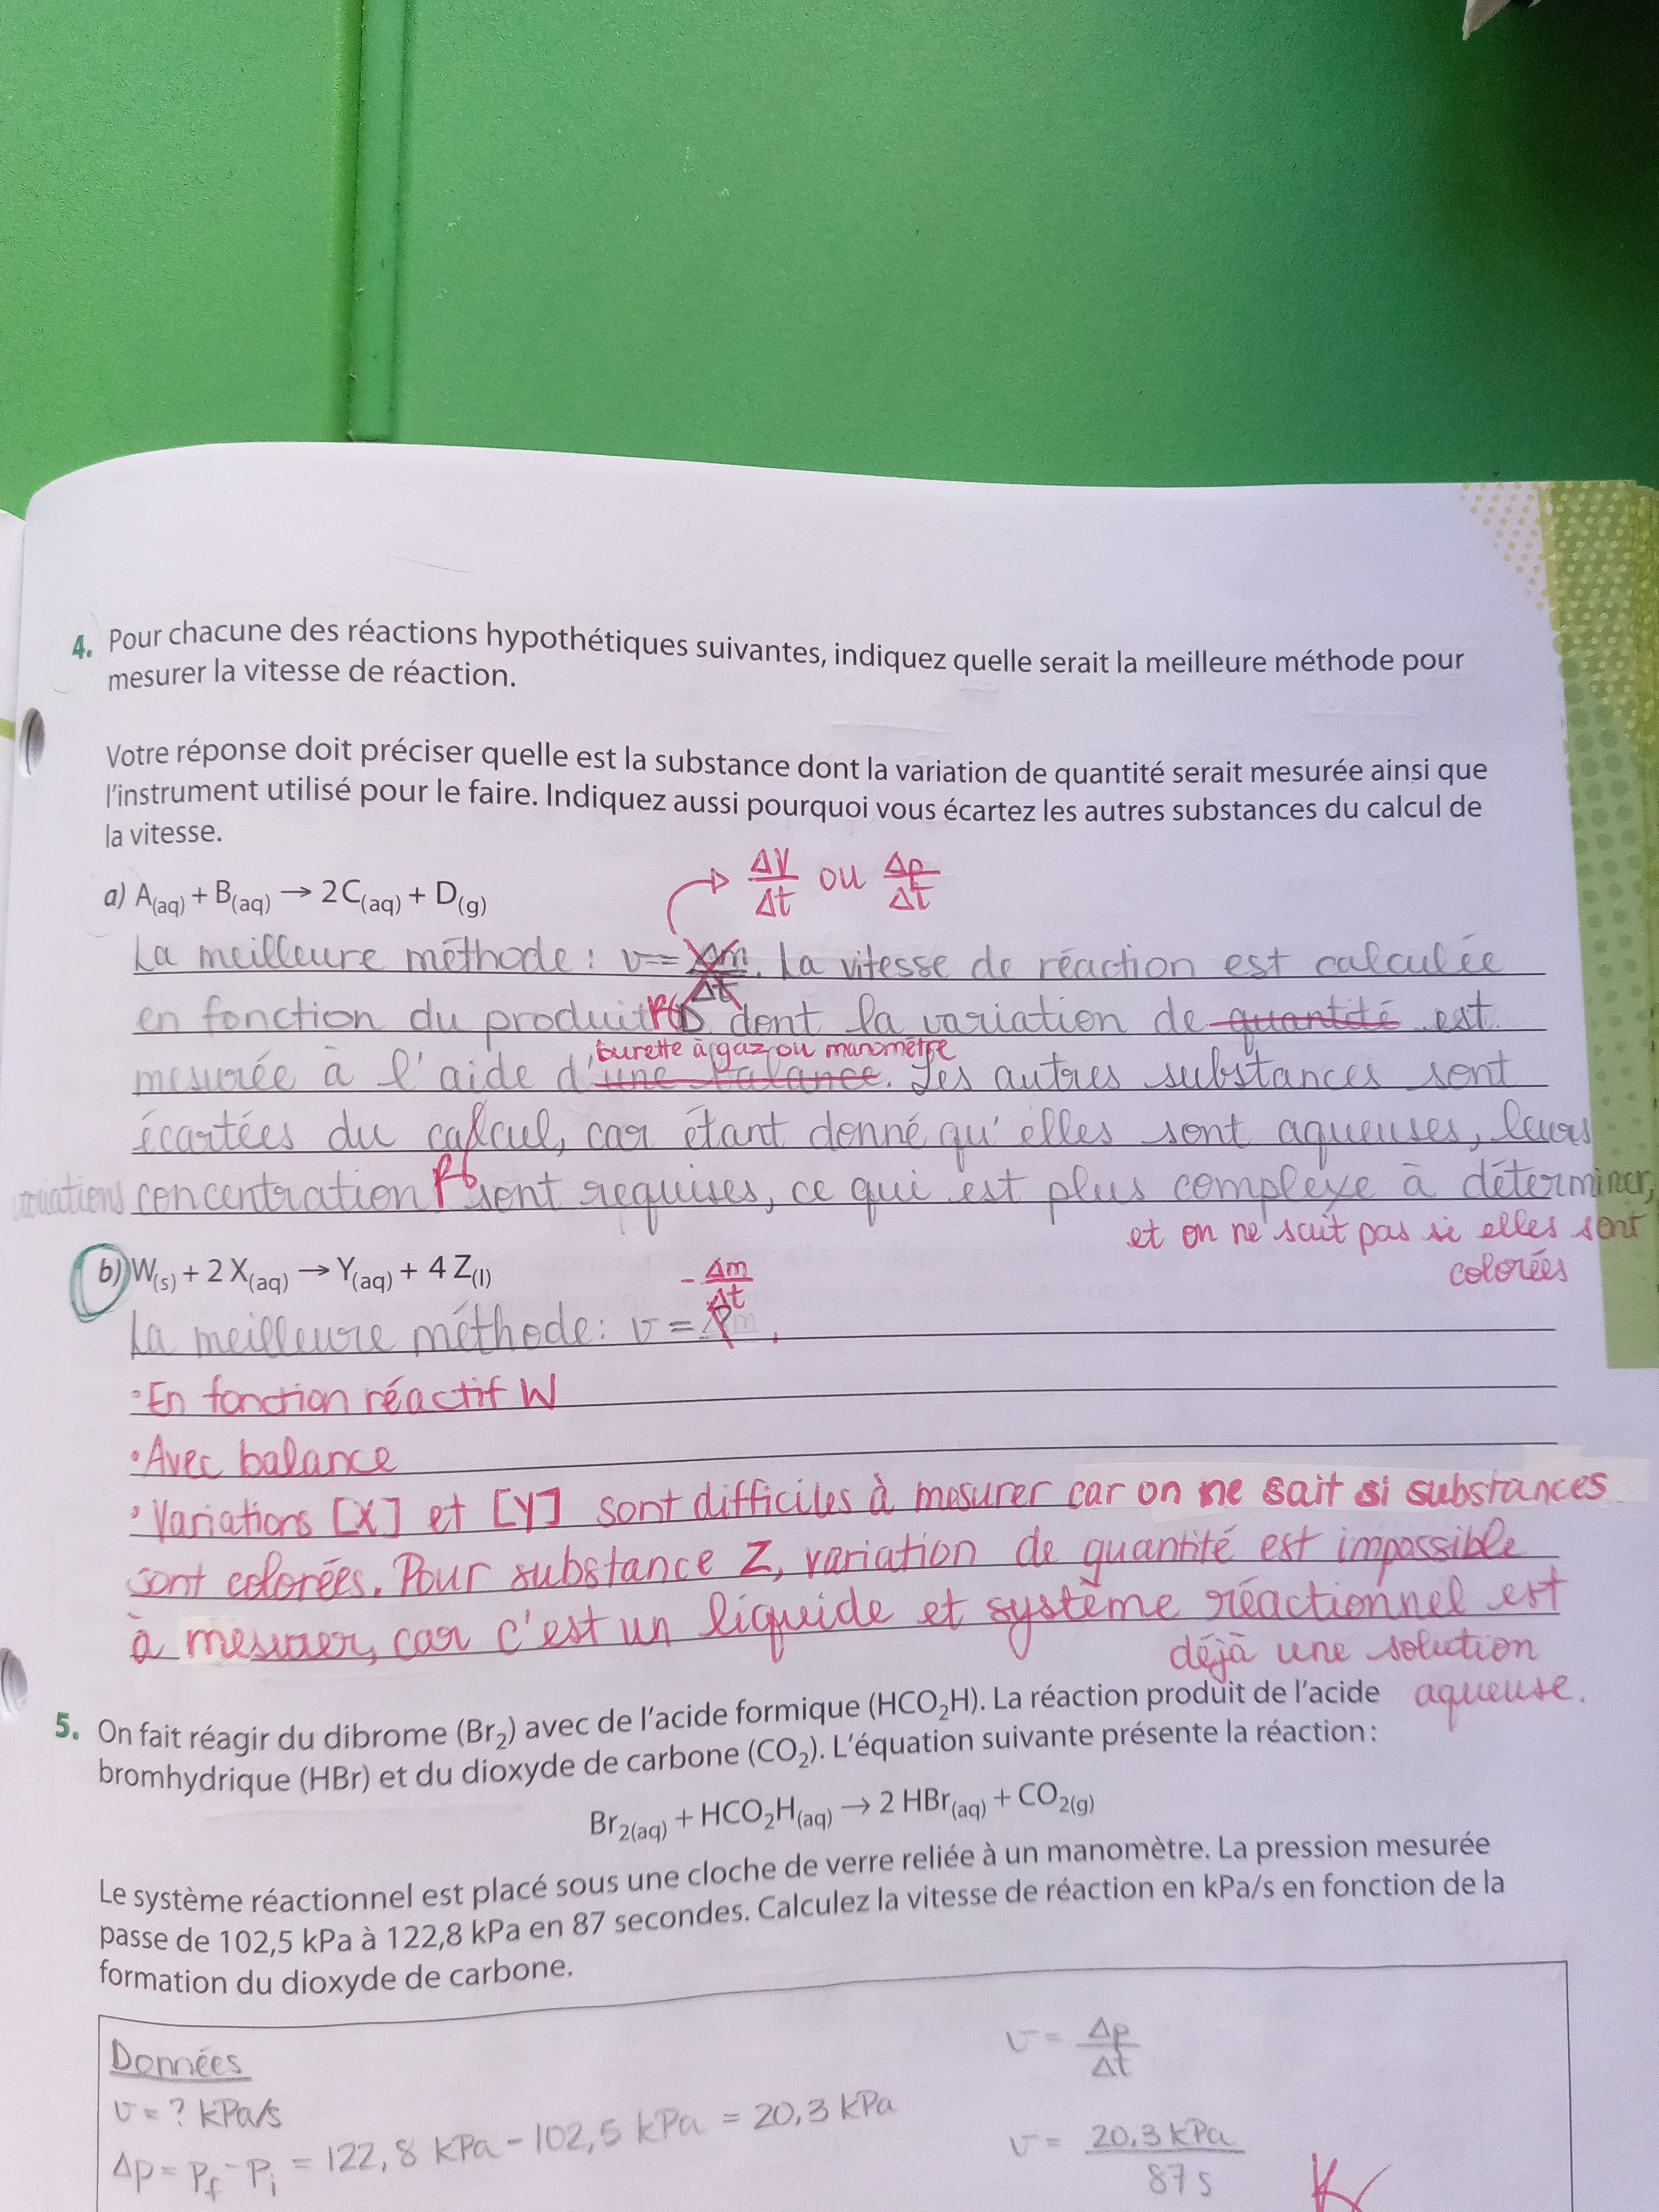 4. Pour chacune des réactions hypothétiques suivantes, indiquez quelle serait la meilleure méthode pour
mesurer la vitesse de réaction.
Votre réponse doit préciser quelle est la substance dont la variation de quantité serait mesurée ainsi que
l'instrument utilisé pour le faire. Indiquez aussi pourquoi vous écartez les autres substances du calcul de
la vitesse.
ΔV/Δt ou Δp/Δt
a) A(aq) + B(aq) → 2 C(aq) + D(g)
La meilleure méthode : v = Δm/Δt. La vitesse de réaction est calculée
en fonction du produit D dont la variation de quantité est
burette à gaz ou manomètre
mesurée à l'aide d'une balance. Les autres substances sont
écartées du calcul, car étant donné qu'elles sont aqueuses, leurs
variations concentration sont requises, ce qui est plus complexe à déterminer,
et on ne sait pas si elles sont
colorées
b) W(s) + 2 X(aq) → Y(aq) + 4 Z(l)
- Δm/Δt
La meilleure méthode : v =
• En fonction réactif W
• Avec balance
• Variations [X] et [Y] sont difficiles à mesurer car on ne sait si substances
sont colorées. Pour substance Z, variation de quantité est impossible
à mesurer, car c'est un liquide et système réactionnel est
déjà une solution
aqueuse.
5. On fait réagir du dibrome (Br₂) avec de l'acide formique (HCO₂H). La réaction produit de l'acide
bromhydrique (HBr) et du dioxyde de carbone (CO₂). L'équation suivante présente la réaction :
Br₂(aq) + HCO₂H(aq) → 2 HBr(aq) + CO₂(g)
Le système réactionnel est placé sous une cloche de verre reliée à un manomètre. La pression mesurée
passe de 102,5 kPa à 122,8 kPa en 87 secondes. Calculez la vitesse de réaction en kPa/s en fonction de la
formation du dioxyde de carbone.
Données
v = ? kPa/s
Δp = Pf - Pi = 122,8 kPa - 102,5 kPa = 20,3 kPa
v = Δp/Δt
v = 20,3 kPa/87 s